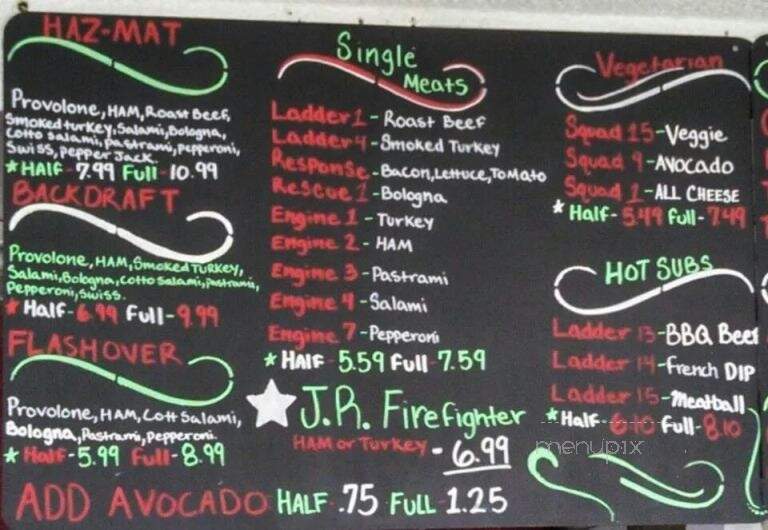 HAZ-MAT
Provolone, HAM, Roast Beef,
Smoked turkey, Salami, Bologna,
Cotto Salami, pastrami, pepperoni,
Swiss, pepper Jack.
*HALF- 7.99 Full- 10.99
BACKDRAFT
Provolone, HAM, Smoked Turkey,
Salami, Bologna, Cotto Salami, Pastrami,
Pepperoni, Swiss.
*Half- 6.99 Full- 9.99
FLASHOVER
Provolone, HAM, Cott Salami,
Bologna, Pastrami, pepperoni.
*Half- 5.99 Full- 8.99
Single
Meats
Ladder 1 - Roast Beef
Ladder 4 - Smoked Turkey
Response - Bacon, Lettuce, Tomato
Rescue 1 - Bologna
Engine 1 - Turkey
Engine 2 - HAM
Engine 3 - Pastrami
Engine 4 - Salami
Engine 7 - Pepperoni
*HAlf- 5.59 Full- 7.59
J.R. Firefighter
HAM or Turkey - 6.99
ADD AVOCADO HALF .75 FULL 1.25
Vegetarian
Squad 15 - Veggie
Squad 9 - AVOCADO
Squad 1 - ALL CHEESE
*Half- 5.49 Full- 7.49
HOT SUBS
Ladder 13 - BBQ Beef
Ladder 14 - French DIP
Ladder 15 - Meatball
*Half- 6.10 Full- 8.10
menupix